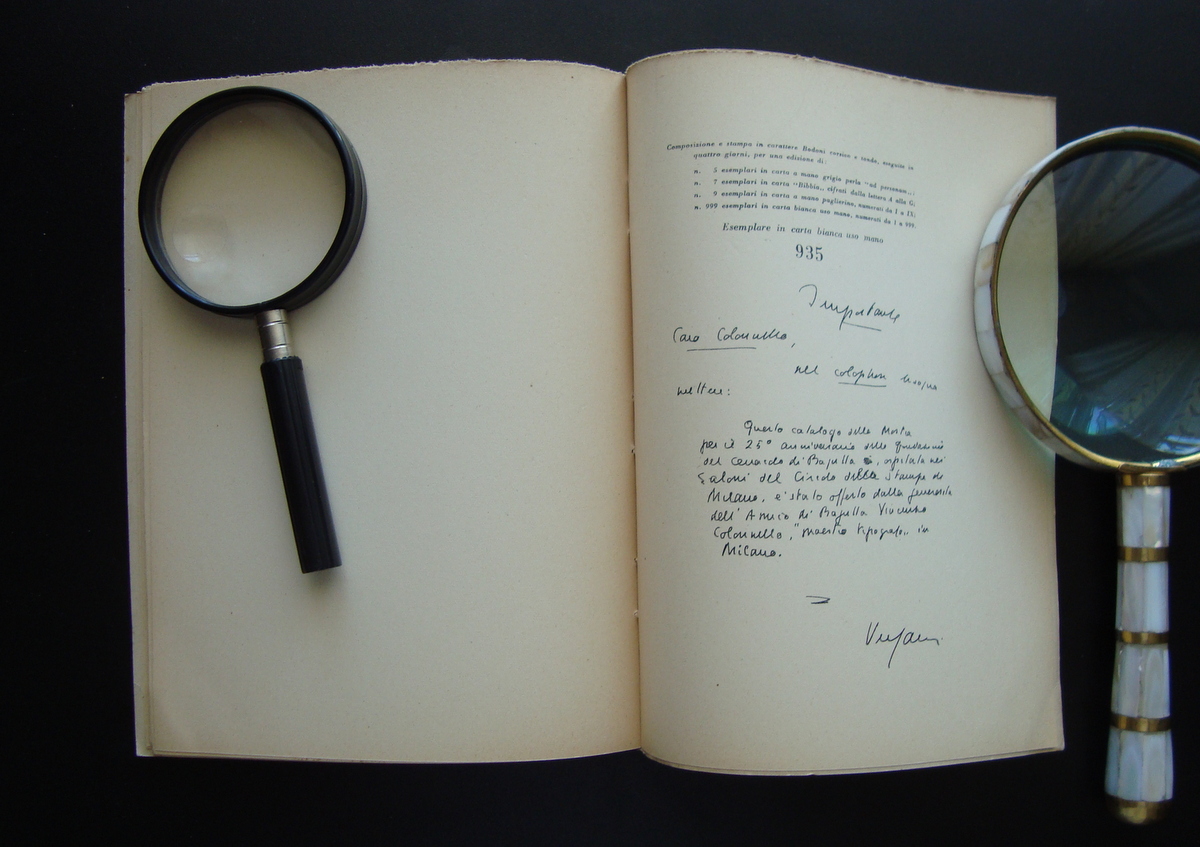 Composizione e stampa in carattere Bodoni corsivo e tondo, eseguite in
quattro giorni, per una edizione di:
n. 5 esemplari in carta a mano grigio perla "ad personam„;
n. 7 esemplari in carta "Bibbia„, cifrati dalla lettera A alla G;
n. 9 esemplari in carta a mano paglierino, numerati da I a IX;
n. 999 esemplari in carta bianca uso mano, numerati da 1 a 999.
Esemplare in carta bianca uso mano
935
Importante
Caro Colonnello,
nel colophon bisogna
mettere:
Questo catalogo della Mostra
per il 25° anniversario della fondazione
del cenacolo di Bagutta, ospitata nei
Saloni del Circolo della Stampa di
Milano, è stato offerto dalla generosità
dell'Amico di Bagutta Vincenzo
Colonnello, "maestro tipografo„ in
Milano.
Vergani